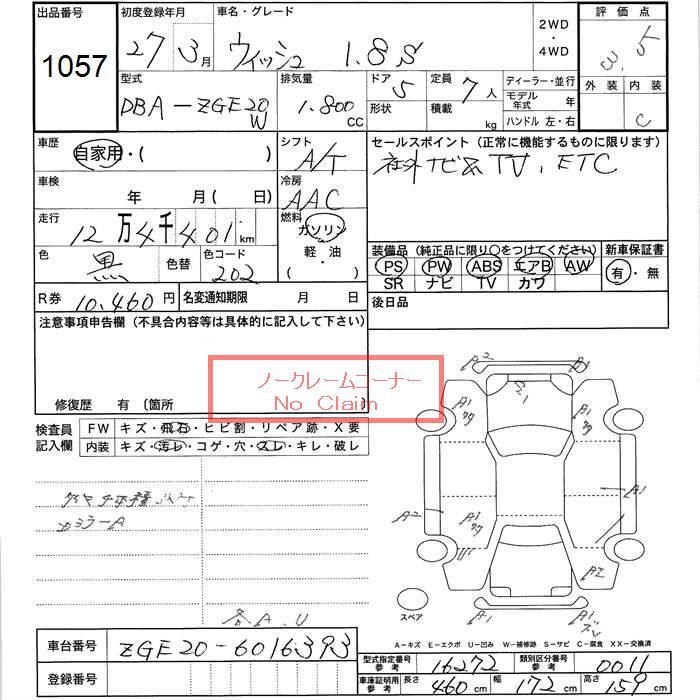 出品番号 初度登録年月 車名・グレード 2WD・4WD 評価点
1057 27 3月 ウィッシュ 1.8S 3.5
型式 排気量 ドア 5 定員 7人 ディーラー・並行 外装 内装
DBA-ZGE20W 1.800 CC 形状 積載 kg モデル年式 年 C
ハンドル 左・右
車歴 自家用・( ) シフト A/T セールスポイント (正常に機能するものに限ります)
社外ナビ& TV, ETC
車検 年 月(日) 冷房 AAC
走行 12万4千401km 燃料 ガソリン
色 黒 色替 色コード 202 軽・油 ( ・ )
装備品 (純正品に限り○をつけてください) 新車保証書
PS PW ABS エアB AW 有・無
SR ナビ TV カワ
R券 10.460円 名変通知期限 月 日 後日品
注意事項申告欄 (不具合内容等は具体的に記入して下さい)
ノークレームコーナー
No Claim
修復歴 有 〔箇所 〕
検査員記入欄 FW キズ・飛石・ヒビ割・リペア跡・X要
内装 キズ・汚レ・コゲ・穴・スレ・キレ・破レ
A2 A1
A1 A1
A2 A1 A1
A1
スペア
カミラーA
各A.U
A-キズ E-エクボ U-凹み W-補修跡 S-サビ C-腐食 XX-交換済
車台番号 ZGE20-6016393
登録番号
型式指定番号 参考 16272 類別区分番号 参考 0011
車庫証明用 参考 長さ 460cm 幅 172cm 高さ 159cm